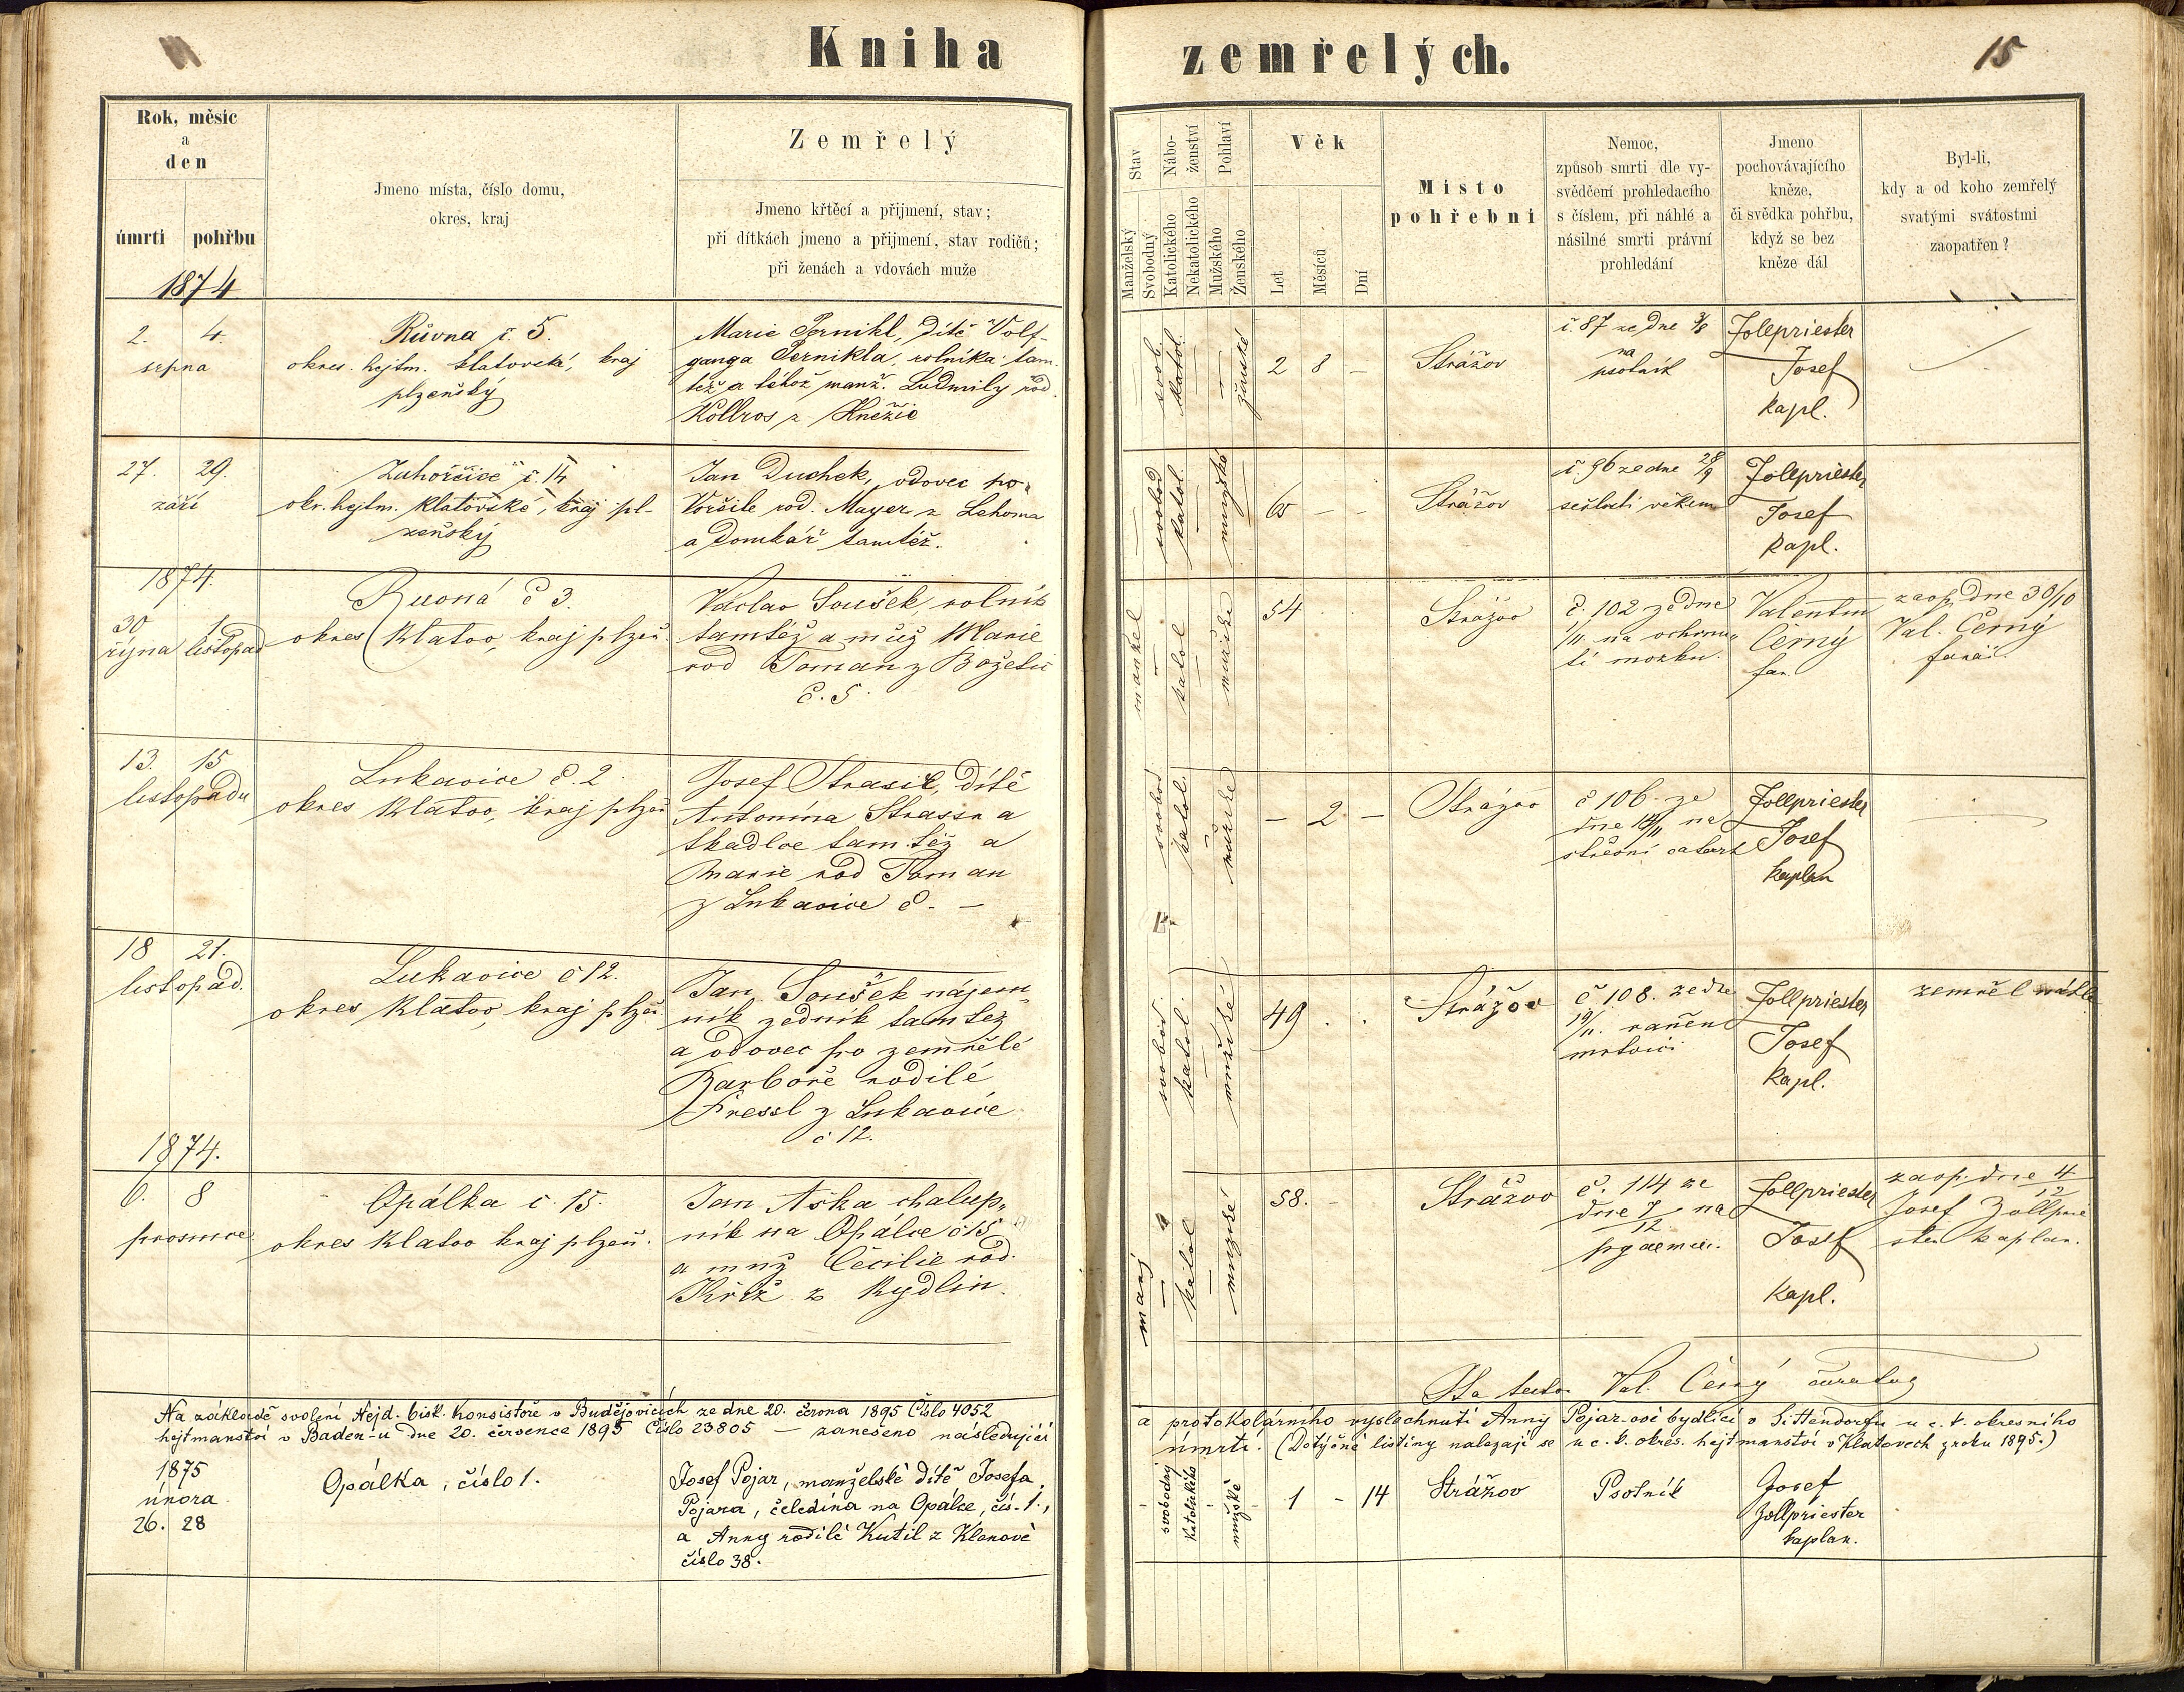 Kniha zemřelých.
15
Rok, měsíc
a
den
úmrtí
pohřbu
1874
Jmeno místa, číslo domu,
okres, kraj
Zemřelý
Jmeno křtěcí a přijmení, stav;
při dítkách jmeno a přijmení, stav rodičů;
při ženách a vdovách muže
Stav
Manželský
Svobodný
Nábo-
ženství
Katolického
Nekatolického
Pohlaví
Mužského
Ženského
Věk
Let
Měsíců
Dní
Místo
pohřební
Nemoc,
způsob smrti dle vy-
svědčení prohledacího
s číslem, při náhlé a
násilné smrti právní
prohledání
Jmeno
pochovávajícího
kněze,
či svědka pohřbu,
když se bez
kněze dál
Byl-li,
kdy a od koho zemřelý
svatými svátostmi
zaopatřen?
2. 4.
srpna
Růvna č. 5.
okres. hejtm. klatovské, kraj
plzeňský
Marie Pernikl, dítě Volf-
ganga Pernikla, rolníka tam-
též a téhož manž. Ludmily rod.
Kollros z Kněžic
svob.
katol.
ženské
2 8 –
Strážov
č. 87 ze dne 3/8
na
psotník
Zollpriester
Josef
kapl.
27. 29.
září
Zahorčice č. 14
okr. hejtm. klatovské, kraj pl-
zeňský
Jan Duchek, vdovec po
Voršile rod. Mayer z Lehoma
a domkář tamtéž.
svobod
katol.
mužské
65 – –
Strážov
č. 96 ze dne 28/9
sešlostí věkem
Zollpriester
Josef
kapl.
1874.
30 1.
října listopad
Ruvná č 3.
okres Klatov, kraj plzeň.
Václav Soušek, rolník
tamtéž a muž Marie
rod Toman z Božetic
č. 5.
manžel
katol
mužské
54
Strážov
č. 102 ze dne
1/11. na ochrnu-
tí mozku.
Valentin
Černý
far.
zaop. dne 30/10
Val. Černý
farář.
13. 15
listopadu
Lukavice č. 2.
okres Klatov, kraj plzeň
Josef Strasse, dítě
Antonína Strassra
tkadlce tamtéž a
Marie rod Toman
z Lukavice č. –
svobod
katol.
mužské
– 2 –
Strážov
č 106. ze
dne 14/11 na
střevní catarh
Zollpriester
Josef
kaplan
18 21.
listopad.
Lukavice č 12.
okres Klatov, kraj plzeň.
Jan Soušek nájem-
ník zedník tamtéž
a vdovec po zemřelé
Barboře rodilé
Fressl z Lukavice
č 12.
svobod.
katol.
mužské
49
Strážov
č 108. ze dne
19/11. raněn
mrtvicí
Zollpriester
Josef
kapl.
zemřel náhle
1874.
6. 8
prosince
Opálka č. 15.
okres Klatov kraj plzeň.
Jan Aška chalup-
ník na Opálce č 15
a muž Cecilie rod.
Kříž z Rydlin.
manž
katol
mužské
58. –
Strážov
č. 114 ze
dne 7/12 na
pyaemii.
Zollpriester
Josef
kapl.
zaop. dne 4/12
Josef Zollprie
ster kaplan.
Val. Černý
Na základě svolení Nejd. bisk. konsistoře v Budějovicích ze dne 20. června 1895 Číslo 4052
a protokolárního vyslechnutí Anny Pojar-ové bydlící v Sittendorfu u c. k. okresního
hejtmanství v Baden-u dne 20. července 1895 Číslo 23805 — zaneseno následující
úmrtí. (Dotýčné listiny nalezají se u c. k. okres. hejtmanství v Klatovech z roku 1895.)
1875
února
26. 28
Opálka, číslo 1.
Josef Pojar, manželské dítě Josefa
Pojara, čeledína na Opálce, čís. 1.,
a Anny rodilé Kutil z Klenové
číslo 38.
svobodný
Katolického
mužské
1 – 14
Strážov
Psotník
Josef
Zollpriester
kaplan.